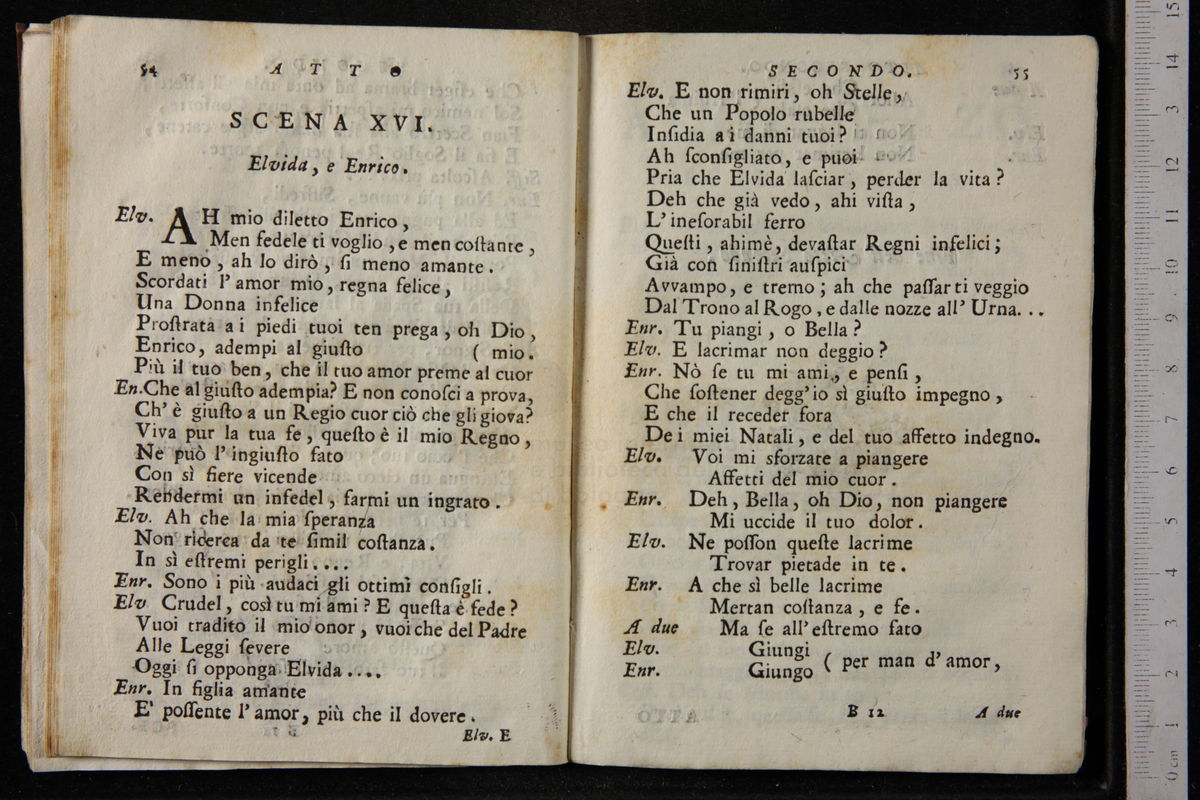 54 ATTO
SCENA XVI.
Elvida, e Enrico.
Elv. AH mio diletto Enrico,
Men fedele ti voglio, e men coſtante,
E meno, ah lo dirò, ſi meno amante.
Scordati l' amor mio, regna felice,
Una Donna infelice
Proſtrata a i piedi tuoi ten prega, oh Dio,
Enrico, adempi al giuſto ( mio.
Più il tuo ben, che il tuo amor preme al cuor
En. Che al giuſto adempia? E non conoſci a prova,
Ch' è giuſto a un Regio cuor ciò che gli giova?
Viva pur la tua fe, queſto è il mio Regno,
Ne può l' ingiuſto fato
Con sì fiere vicende
Rendermi un infedel, farmi un ingrato.
Elv. Ah che la mia ſperanza
Non ricerca da te ſimil coſtanza.
In sì eſtremi perigli....
Enr. Sono i più audaci gli ottimi conſigli.
Elv Crudel, così tu mi ami? E queſta è fede?
Vuoi tradito il mio onor, vuoi che del Padre
Alle Leggi ſevere
Oggi ſi opponga Elvida....
Enr. In figlia amante
E' poſſente l' amor, più che il dovere.
Elv. E
SECONDO. 55
Elv. E non rimiri, oh Stelle,
Che un Popolo rubelle
Inſidia a i danni tuoi?
Ah ſconſigliato, e puoi
Pria che Elvida laſciar, perder la vita?
Deh che già vedo, ahi viſta,
L' ineſorabil ferro
Queſti, ahimè, devaſtar Regni infelici;
Già con ſiniſtri auſpici
Avvampo, e tremo; ah che paſſar ti veggio
Dal Trono al Rogo, e dalle nozze all' Urna...
Enr. Tu piangi, o Bella?
Elv. E lacrimar non deggio?
Enr. Nò ſe tu mi ami, e penſi,
Che ſoſtener degg' io sì giuſto impegno,
E che il receder fora
De i miei Natali, e del tuo affetto indegno.
Elv. Voi mi sforzate a piangere
Affetti del mio cuor.
Enr. Deh, Bella, oh Dio, non piangere
Mi uccide il tuo dolor.
Elv. Ne poſſon queſte lacrime
Trovar pietade in te.
Enr. A che sì belle lacrime
Mertan coſtanza, e fe.
A due Ma ſe all' eſtremo fato
Elv. Giungi
Enr. Giungo ( per man d' amor,
B 12 A due